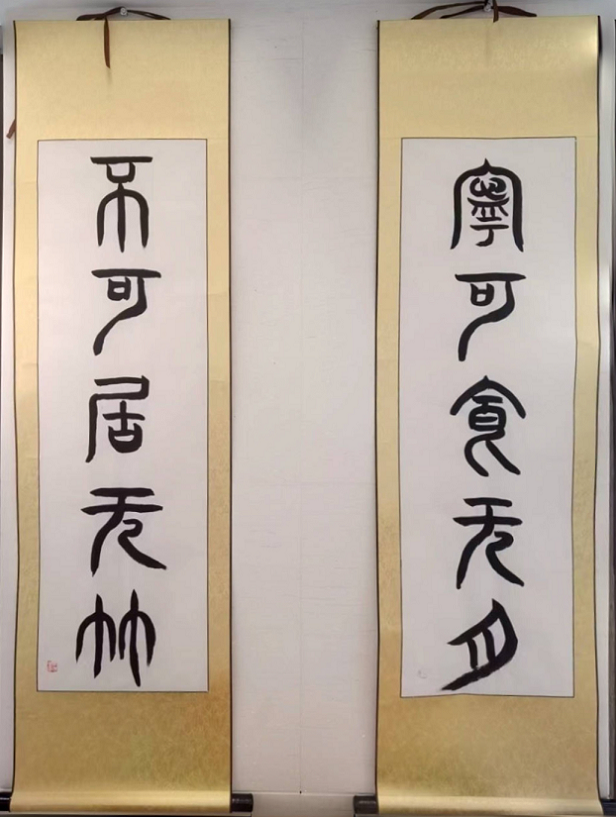 寧可食无肉
不可居无竹